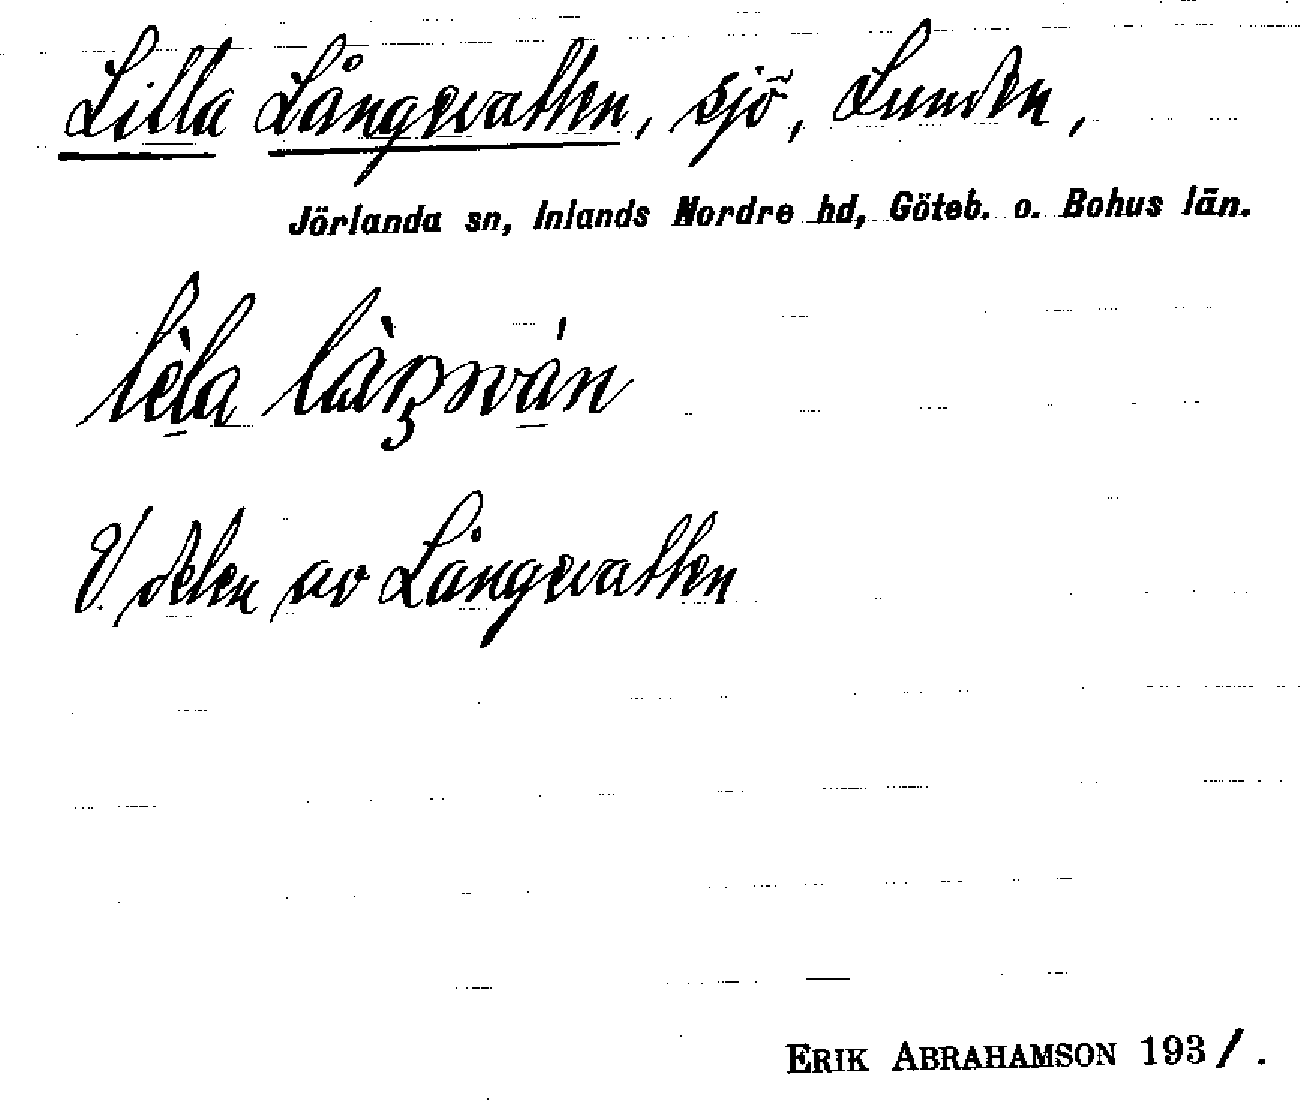 Lilla Långevatten, sjö, Lunden,
Jörlanda sn, Inlands Nordre hd, Göteb. o. Bohus län.
V. delen av Långevatten
ERIK ABRAHAMSON 1931.